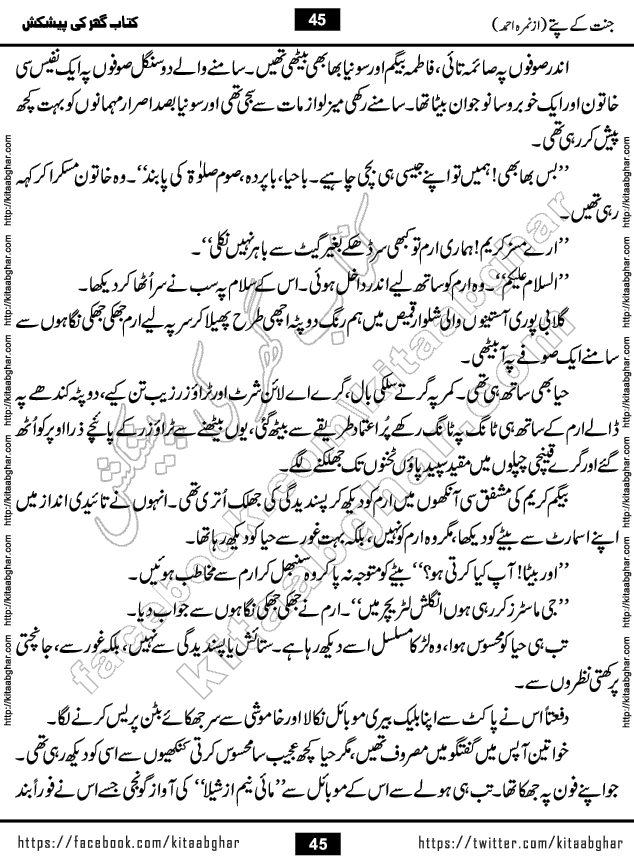 جنت کے پتے (از نمرہ احمد)
45
کتاب گھر کی پیشکش
اندر صوفوں پہ صائمہ تائی، فاطمہ بیگم اور سونیا بھابھی بیٹھی تھیں۔ سامنے والے دو سنگل صوفوں پہ ایک نفیس سی
خاتون اور ایک خوبرو سا نوجوان بیٹھا تھا۔ سامنے رکھی میز لوازمات سے سجی تھی اور سونیا بصد اصرار مہمانوں کو بہت کچھ
پیش کر رہی تھی۔
”بس بھابھی! ہمیں تو اپنے جیسی ہی بچی چاہیے۔ باحیا، باپردہ، صوم صلوٰۃ کی پابند“۔ وہ خاتون مسکرا کر کہہ
رہی تھیں۔
”ارے مسز کریم! ہماری ارم تو کبھی سر ڈھکے بغیر گیٹ سے باہر نہیں نکلی“۔
”السلام علیکم“۔ وہ ارم کو ساتھ لیے اندر داخل ہوئی۔ اس کے سلام پہ سب نے سر اُٹھا کر دیکھا۔
گلابی پوری آستینوں والی شلوار قمیص میں ہم رنگ دوپٹہ اچھی طرح پھیلا کر سر پہ لیے ارم جھکی جھکی نگاہوں سے
سامنے ایک صوفے پہ آ بیٹھی۔
حیا بھی ساتھ ہی تھی۔ کمر پہ گرتے سلکی بال، گرے اے لائن شرٹ اور ٹراؤزر زیب تن کیے، دوپٹہ کندھے پہ
ڈالے ارم کے ساتھ ہی ٹانگ پہ ٹانگ رکھے پُر اعتماد طریقے سے بیٹھ گئی، یوں بیٹھنے سے ٹراؤزر کے پائنچے ذرا اوپر کو اُٹھ
گئے اور گرے قینچی چپلوں میں مقید سپید پاؤں ٹخنوں تک جھلکنے لگے۔
بیگم کریم کی مشفق سی آنکھوں میں ارم کو دیکھ کر پسندیدگی کی جھلک اُتری تھی۔ انہوں نے تائیدی انداز میں
اپنے اسمارٹ سے بیٹے کو دیکھا، مگر وہ ارم کو نہیں، بلکہ بہت غور سے حیا کو دیکھ رہا تھا۔
”اور بیٹا! آپ کیا کرتی ہو؟“ بیٹے کو متوجہ نہ پا کر وہ سنبھل کر ارم سے مخاطب ہوئیں۔
”جی ماسٹرز کر رہی ہوں انگلش لٹریچر میں“۔ ارم نے جھکی جھکی نگاہوں سے جواب دیا۔
تب ہی حیا کو محسوس ہوا، وہ لڑکا مسلسل اسے دیکھ رہا ہے۔ ستائش یا پسندیدگی سے نہیں، بلکہ غور سے، جانچتی
پرکھتی نظروں سے۔
دفعتاً اس نے پاکٹ سے اپنا بلیک بیری موبائل نکالا اور خاموشی سے سر جھکائے بٹن پریس کرنے لگا۔
خواتین آپس میں گفتگو میں مصروف تھیں، مگر حیا کچھ عجیب سا محسوس کرتی کنکھیوں سے اسی کو دیکھ رہی تھی۔
جو اپنے فون پہ جھکا تھا۔ تب ہی ہولے سے اس کے موبائل سے ”مائی نیم از شیلا“ کی آواز گونجی جسے اس نے فوراً بند
http://kitaabghar.com http://kitaabghar.com http://kitaabghar.com http://kitaabghar.com http://kitaabghar.com http://kitaabghar.com
http://kitaabghar.com http://kitaabghar.com http://kitaabghar.com http://kitaabghar.com http://kitaabghar.com http://kitaabghar.com
کتاب گھر کی پیشکش
facebook.com/kitaabghar
kitaabghar.com
https://facebook.com/kitaabghar
45
https://twitter.com/kitaabghar